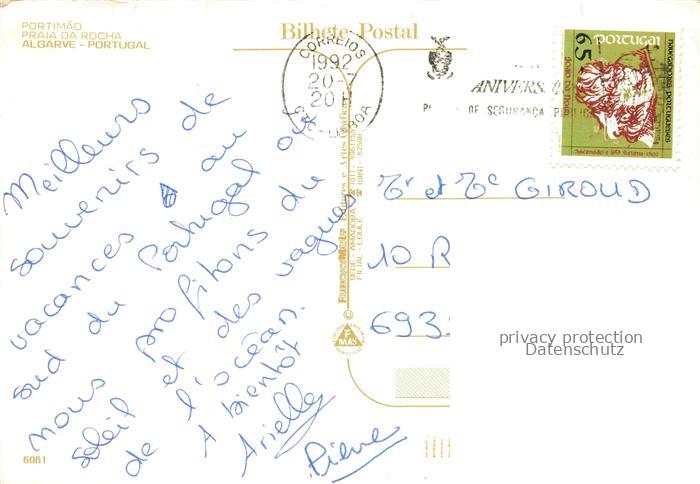 PORTIMÃO
PRAIA DA ROCHA
ALGARVE - PORTUGAL
Bilhete-Postal
CORREIOS
1992
20-7
20H
LISBOA
ANIVERS
DE SEGURANÇA
PORTUGAL
65.
navegadores portugueses
Meilleurs
souvenirs de
vacances au
sud du Portugal où
nous profitons du
soleil et des vagues
de l'océan.
A bientôt
Arielle
Pierre
Mr et Me GIROUD
10 R
693
SEDE - AMADORA
FILIAL - LOULÉ
privacy protection
Datenschutz
6061